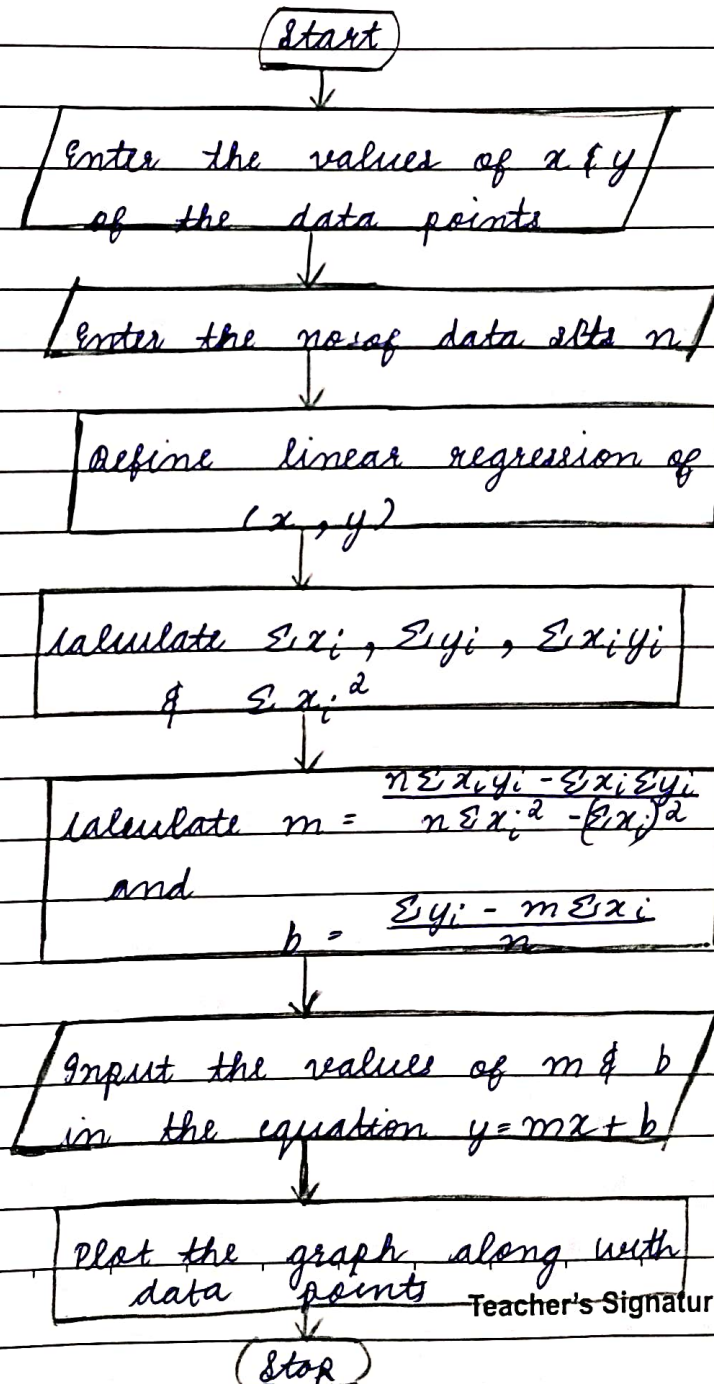 Start
Enter the values of x & y
of the data points
Enter the no. of data sets n
Define linear regression of
(x, y)
Calculate Σxi, Σyi, Σxiyi
& Σxi²
Calculate m = (nΣxiyi - ΣxiΣyi) / (nΣxi² - (Σxi)²)
and
b = (Σyi - mΣxi) / n
Input the values of m & b
in the equation y = mx + b
Plot the graph along with
data points
Teacher's Signatur
Stop